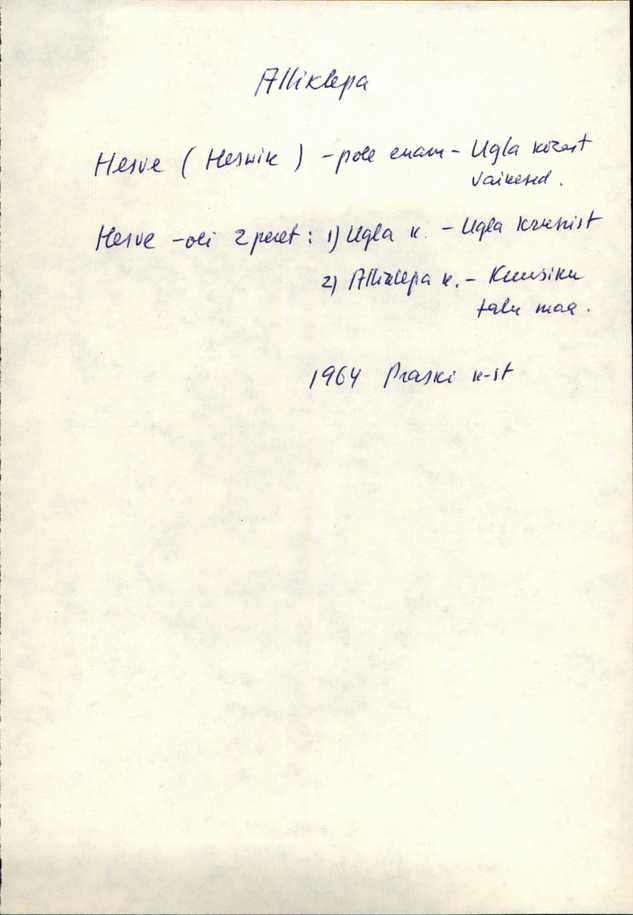 Alliklepa
Hesve (Heswik) - pole enam - Ugla
vaikesed.
Hesve - oli 2 peret: 1) Ugla k. - Ugla
2) Alliklepa k. - Kuusiku
talu maa.
1964 Praski k-st